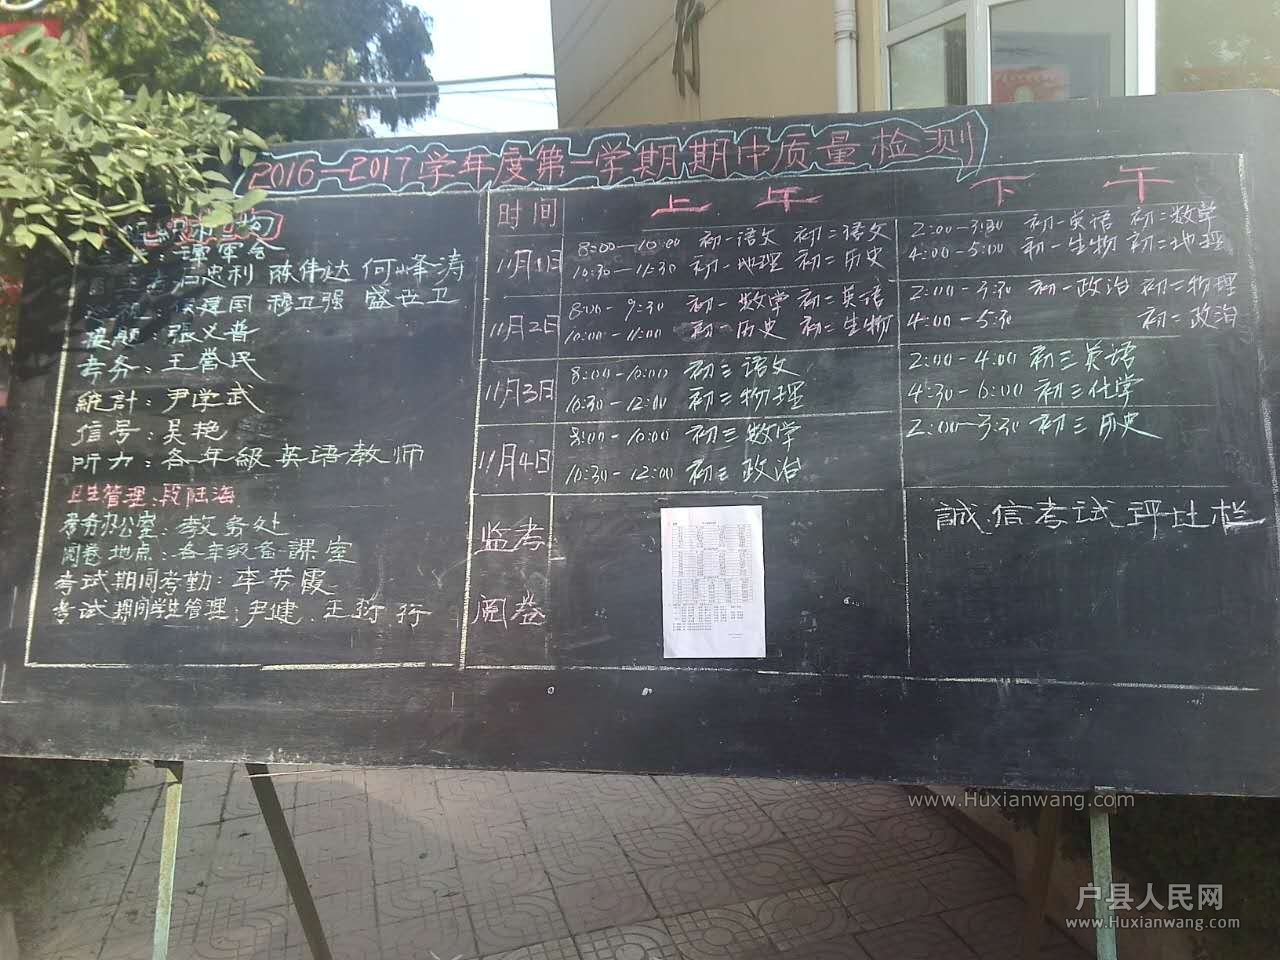 2016—2017学年度第一学期期中质量检测
陈伟达 何峰涛
建国 穆卫强 盛世卫
張义普
考务：王誉民
統計：尹学武
信号：吴艳
听力：各年級英语教师
卫生管理：段陆海
考务办公室：教务处
阅卷地点：各年级备課室
考试期间考勤：李芳霞
考试期间学生管理：尹健、王
时间 上午 下午
11月1日 8:00—10:00 初一语文 初二语文 2:00-3:30 初一英语 初二数学
10:30-11:30 初一地理 初二历史 4:00-5:00 初一生物 初二地理
11月2日 8:00-9:30 初一数学 初二英语 2:00-3:30 初一政治 初二物理
10:00-11:00 初一历史 初二生物 4:00-5:30 初二政治
11月3日 8:00-10:00 初三语文 2:00-4:00 初三英语
10:30-12:00 初三物理 4:30-6:00 初三化学
11月4日 8:00-10:00 初三数学 2:00-3:30 初三历史
10:30-12:00 初三政治
监考
阅卷
誠信考试评比栏
www.Huxianwang.com
户县人民网
www.Huxianwang.com